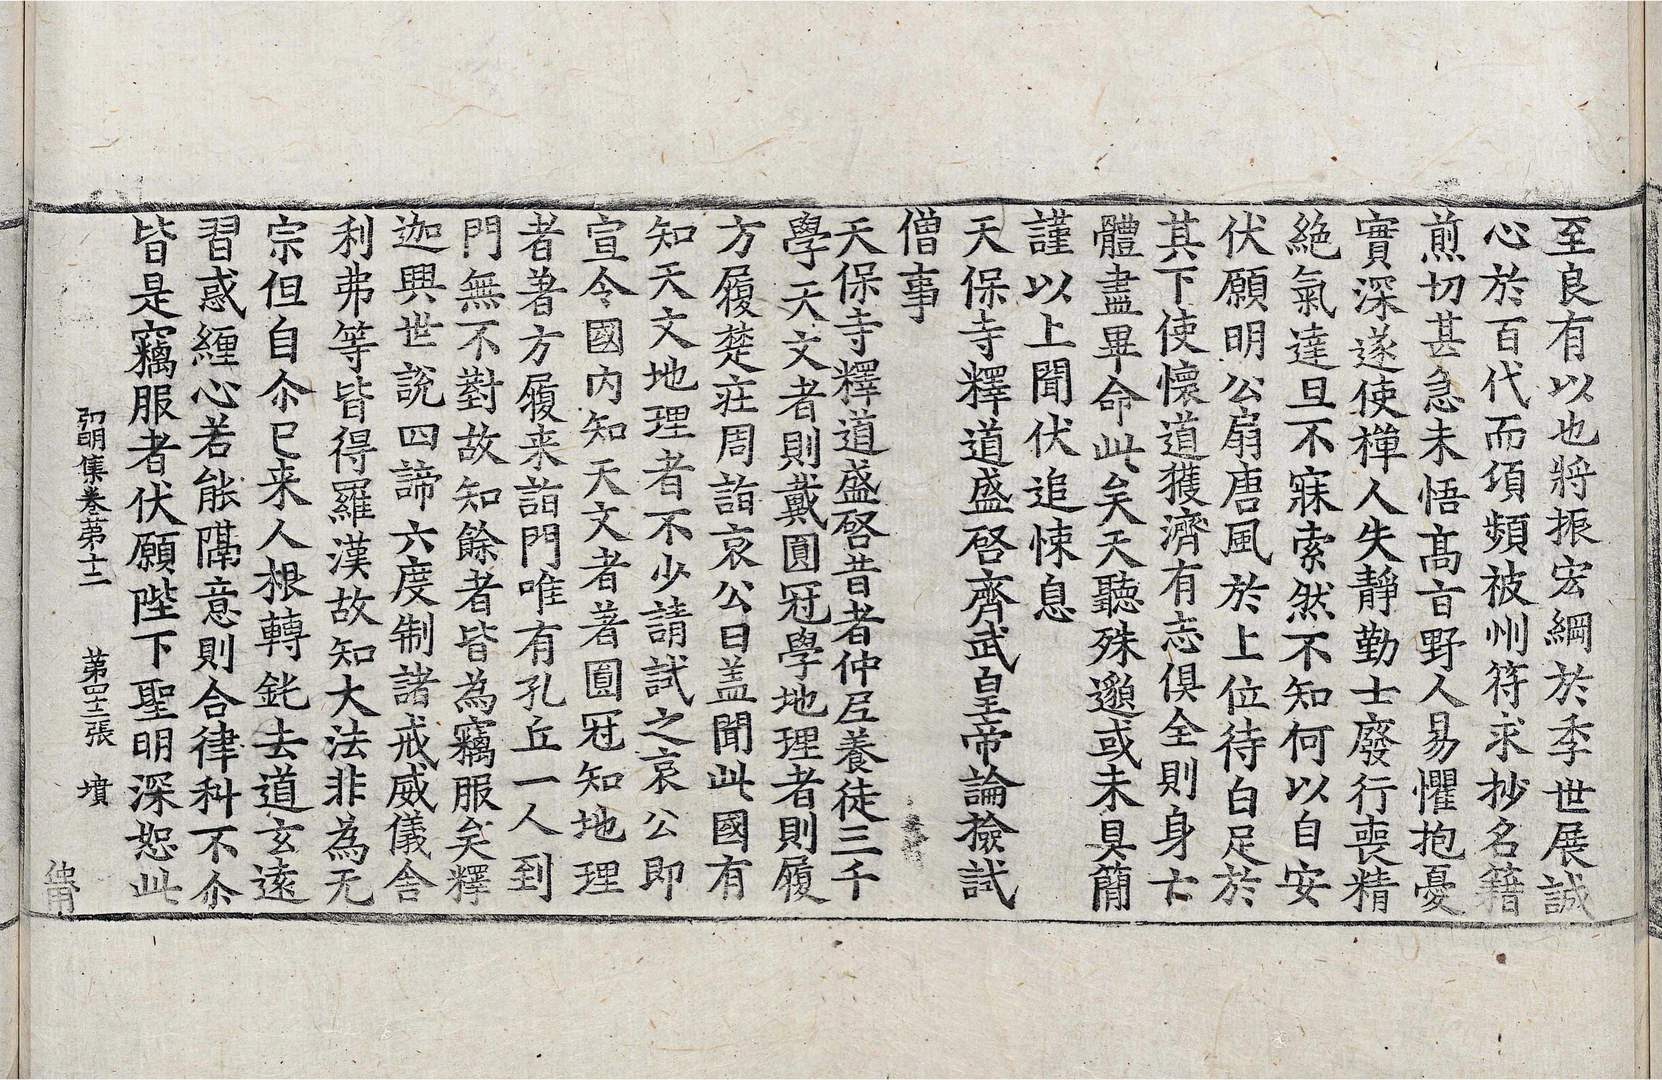 至良有以也將振宏綱於季世展誠
心於百代而頃頻被州符求抄名籍
煎切甚急未悟髙旨野人易懼抱憂
實深遂使禪人失靜勤士廢行喪精
絕氣達旦不寐索然不知何以自安
伏願明公扇唐風於上位待白足於
其下使懷道獲濟有志俱全則身亡
體盡畢命此矣天聽殊邈或未具簡
謹以上聞伏追悚息
天保寺釋道盛啓齊武皇帝論撿試
僧事
天保寺釋道盛啓昔者仲尼養徒三千
學天文者則戴圓冠學地理者則履
方履楚莊周詣哀公曰盖聞此國有
知天文地理者不少請試之哀公即
宣令國內知天文者著圓冠知地理
者著方履来詣門唯有孔丘一人到
門無不對故知餘者皆為竊服矣釋
迦興世說四諦六度制諸戒威儀舍
利弗等皆得羅漢故知大法非為无
宗但自尒已来人根轉鈍去道玄遠
習惑纏心若能隔意則合律科不尒
皆是竊服者伏願陛下聖明深恕此
弘明集卷第十二 第四十二張 墳